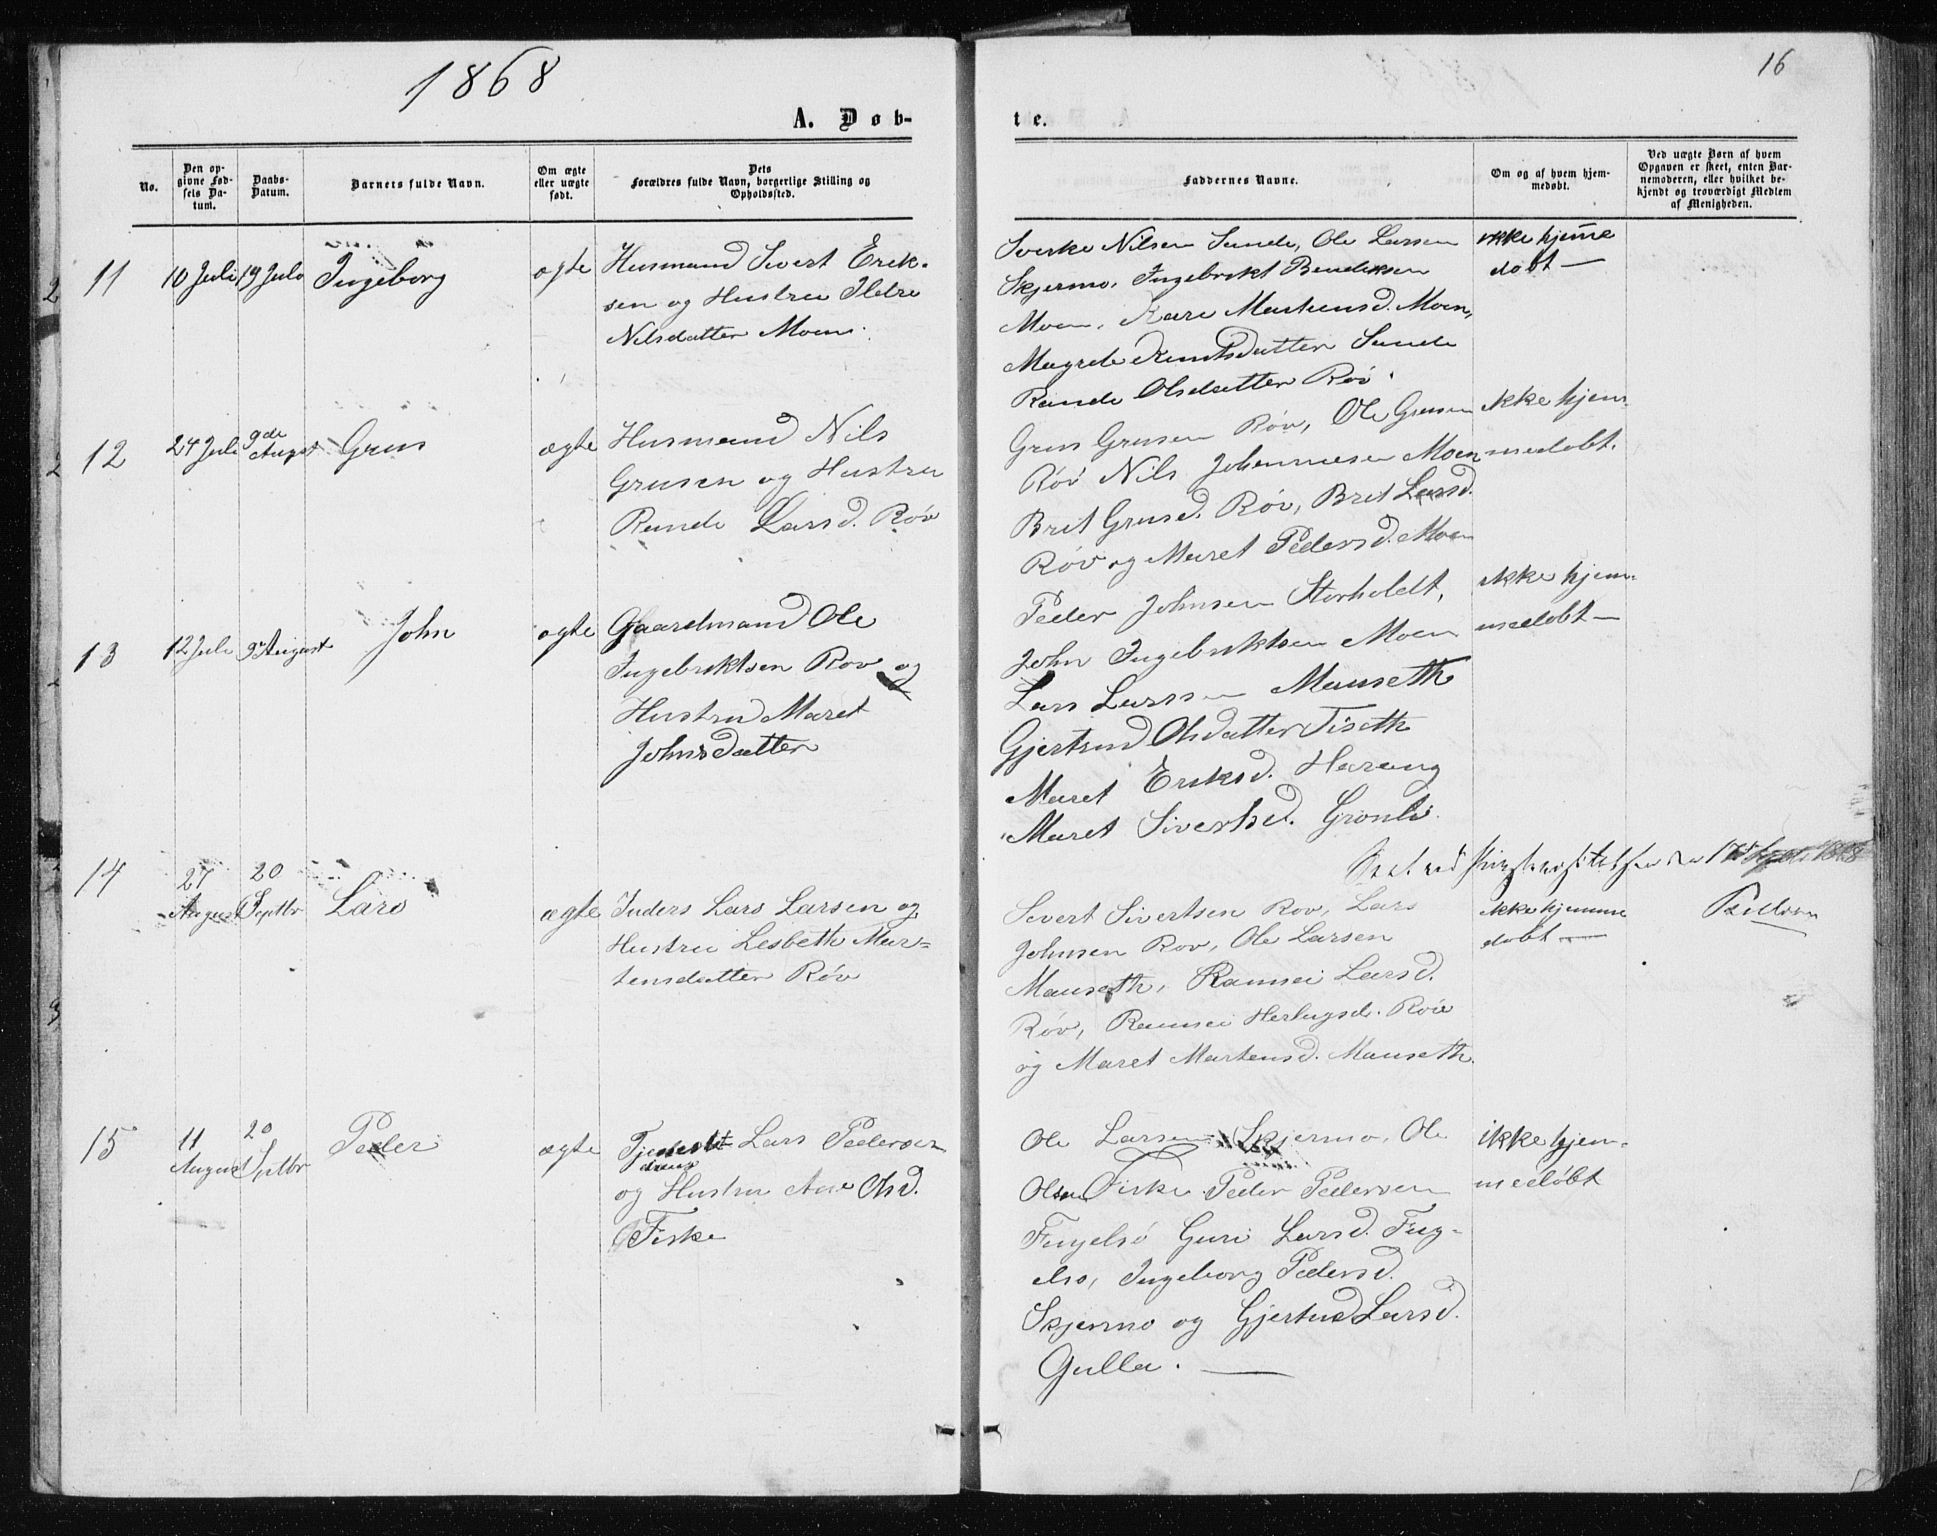 1868
16
A. Døb-
te.
No.
Den op-
givne Fød-
sels Da-
tum.
Daabs-
Datum.
Barnets fulde Navn.
Om ægte
eller uægte
født.
Dets
Forældres fulde Navn, borgerlige Stilling og
Opholdssted.
Faddernes Navne.
Om og af hvem hjem-
medøbt.
Ved uægte Børn af hvem
Opgaven er skeet, enten Bar-
nemoderen, eller hvilket be-
kjendt og troværdigt Medlem
af Menigheden.
11
10 Juli
19 Juli
Ingeborg
ægte
Husmand Sivert Erik-
sen og Hustru Ildri
Nilsdatter Moen.
Sverke Nilsen Sande, Ole Larsen
Skjermo, Ingebrikt Bendiksen
Moen, Kari Martensd. Moen,
Magrete Knutsdatter Sande
Rande Olsdatter Röv.
ikke hjem̅e
dobt —
12
24 Juli
9de
August
Grus
ægte
Husmand Nils
Grusen og Hustru
Rande Larsd. Röv
Grus Grusen Röv, Ole Grusen
Röv Nils Johannesen Moen
Brit Grusd. Röv, Brit Larsd.
Röv og Maret Pedersd. Moen
ikke hjem-
medöbt.
13
12 Juli
9 August
John
ægte
Gaardmand Ole
Ingebriktsen Rov og
Hustru Maret
Johnsdatter
Peder Johnsen Storholdt,
John Ingebriktsen Moen
Lars Larssen Mauseth
Gjertrud Olsdatter Tiseth
Maret Eriksd. Harang
Maret Sivertsd. Gronli.
ikke hjem-
medobt —
14
27
August
20
Septbr
Lars
ægte
Inders Lars Larsen og
Hustru Lesbeth Mar-
tensdatter Röv
Severt Sivertsen Rov, Lars
Johnsen Rov, Ole Larsen
Mauseth, Rannei Larsd.
Röv, Rannei Herlugsd. Röv
og Maret Martensd. Mauseth.
ikke hjemme
dobt —
15
11
August
20
Septbr
Peder
ægte
Lars Pedersen
og Hustru Ane Olsd.
Fiske
Ole Larsen Skjermo, Ole
Olsen Fiske Peder Pedersen
Fugelsö Guri Larsd. Fug-
elso, Ingeborg Pedersd.
Skjermo og Gjertrud Larsd.
Gulla. —
ikke hjem-
medöbt